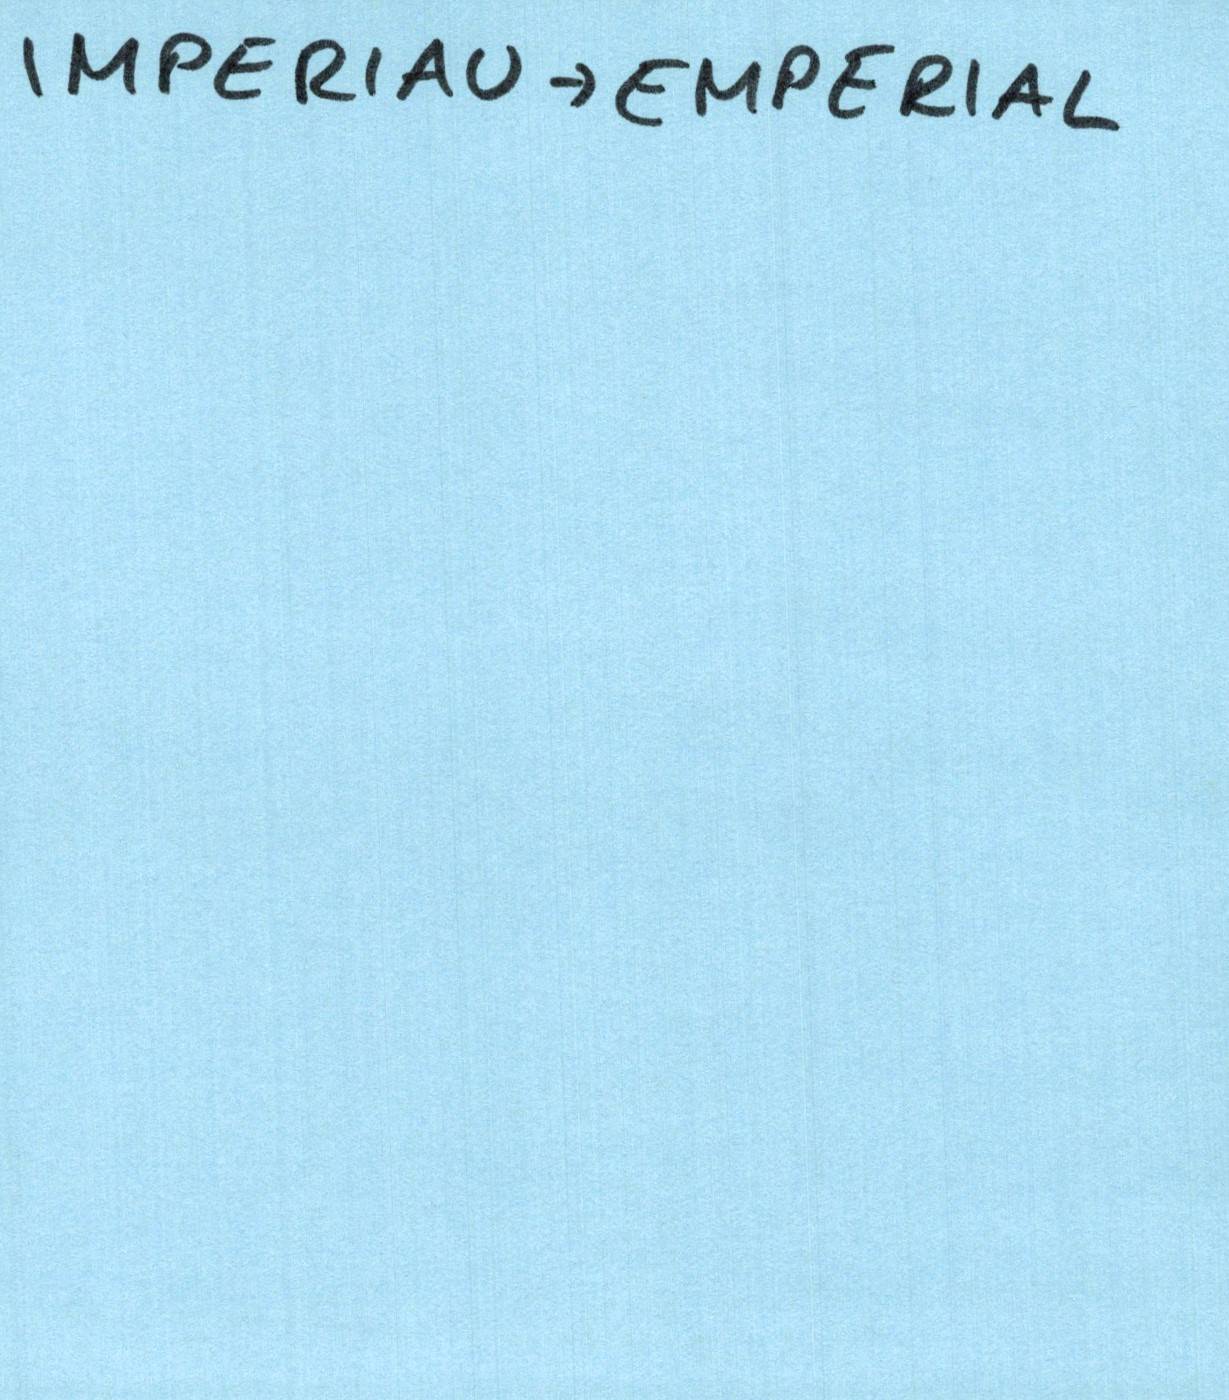 IMPERIAU → EMPERIAL